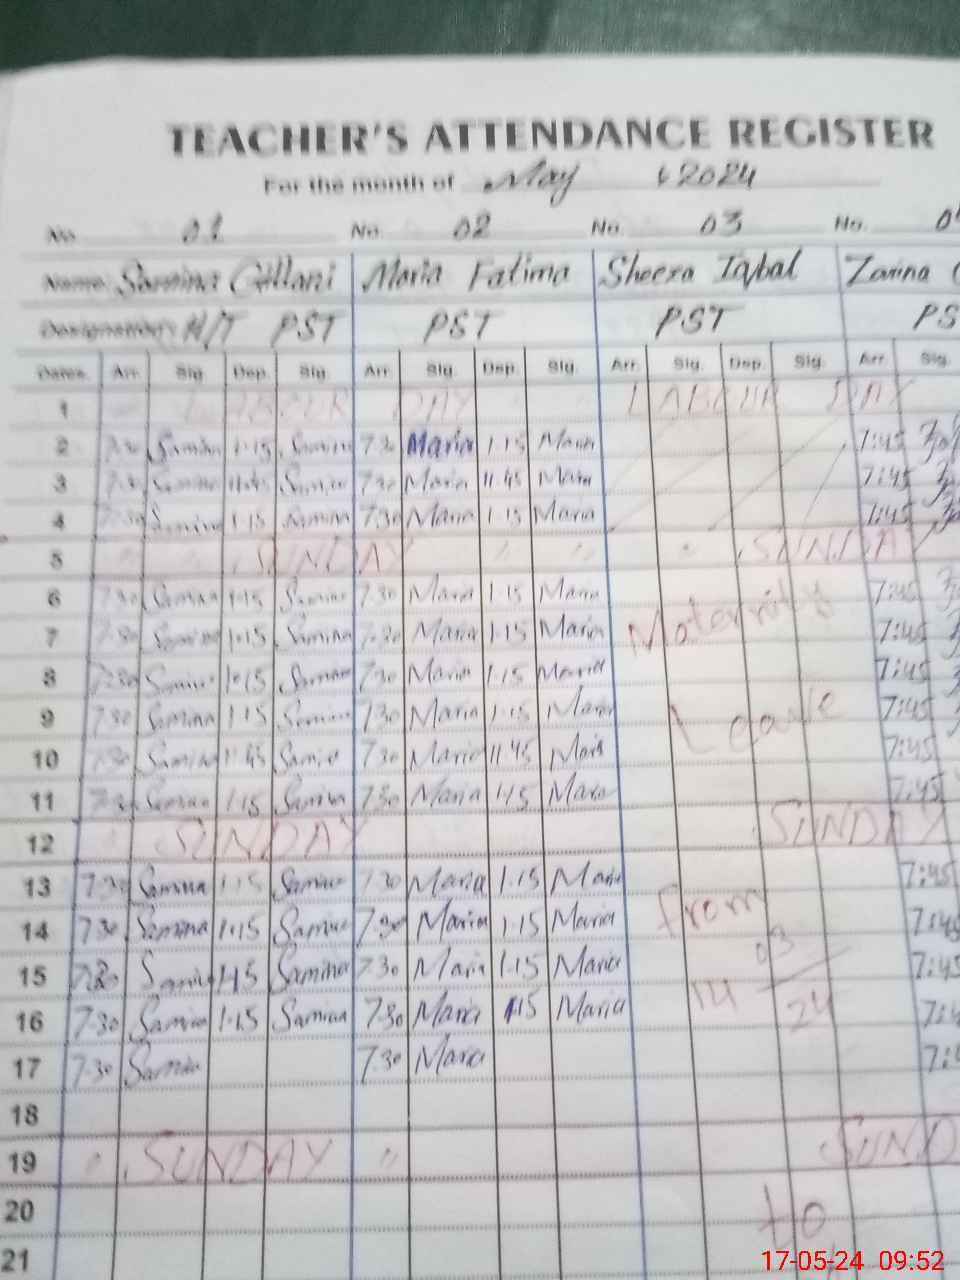 TEACHER'S ATTENDANCE REGISTER
For the month of May 2024
No. 01 No. 02 No. 03 No.
Name: Samina Gillani Maria Fatima Sheeza Iqbal Zarina
Designation: H/T PST PST PST PS
Dates. Arr. Sig. Dep. Sig. Arr. Sig. Dep. Sig. Arr. Sig. Dep. Sig. Arr. Sig.
1 LABOUR DAY LABOUR DAY
2 7:30 Samina 1:15 Samina 7.30 Maria 1.15 Maria 7:45
3 7:30 Samina 11:45 Samina 7.30 Maria 11.45 Maria 7:45
4 7:30 Samina 1:15 Samina 7.30 Maria 1.15 Maria 7:45
5 SUNDAY SUNDAY
6 7:30 Samina 1:15 Samina 7.30 Maria 1.15 Maria 7:45
7 7:30 Samina 1:15 Samina 7:30 Maria 1.15 Maria Maternity 7:45
8 7:30 Samina 1:15 Samina 7.30 Maria 1.15 Maria 7:45
9 7.30 Samina 1:15 Samina 7.30 Maria 1.15 Maria Leave 7:45
10 7:30 Samina 11:45 Samina 7.30 Maria 11.45 Maria 7:45
11 7:30 Samina 1:15 Samina 7.30 Maria 1.15 Maria 7:45
12 SUNDAY SUNDAY
13 7:30 Samina 1:15 Samina 7.30 Maria 1.15 Maria 7:45
14 7.30 Samina 1:15 Samina 7.30 Maria 1.15 Maria from
15 7.30 Samina 1:15 Samina 7.30 Maria 1.15 Maria 03 7:45
16 7.30 Samina 1:15 Samina 7.30 Maria 1.15 Maria 14 24
17 7.30 Samina 7.30 Maria
18
19 " SUNDAY " SUND
20 to
21
17-05-24 09:52